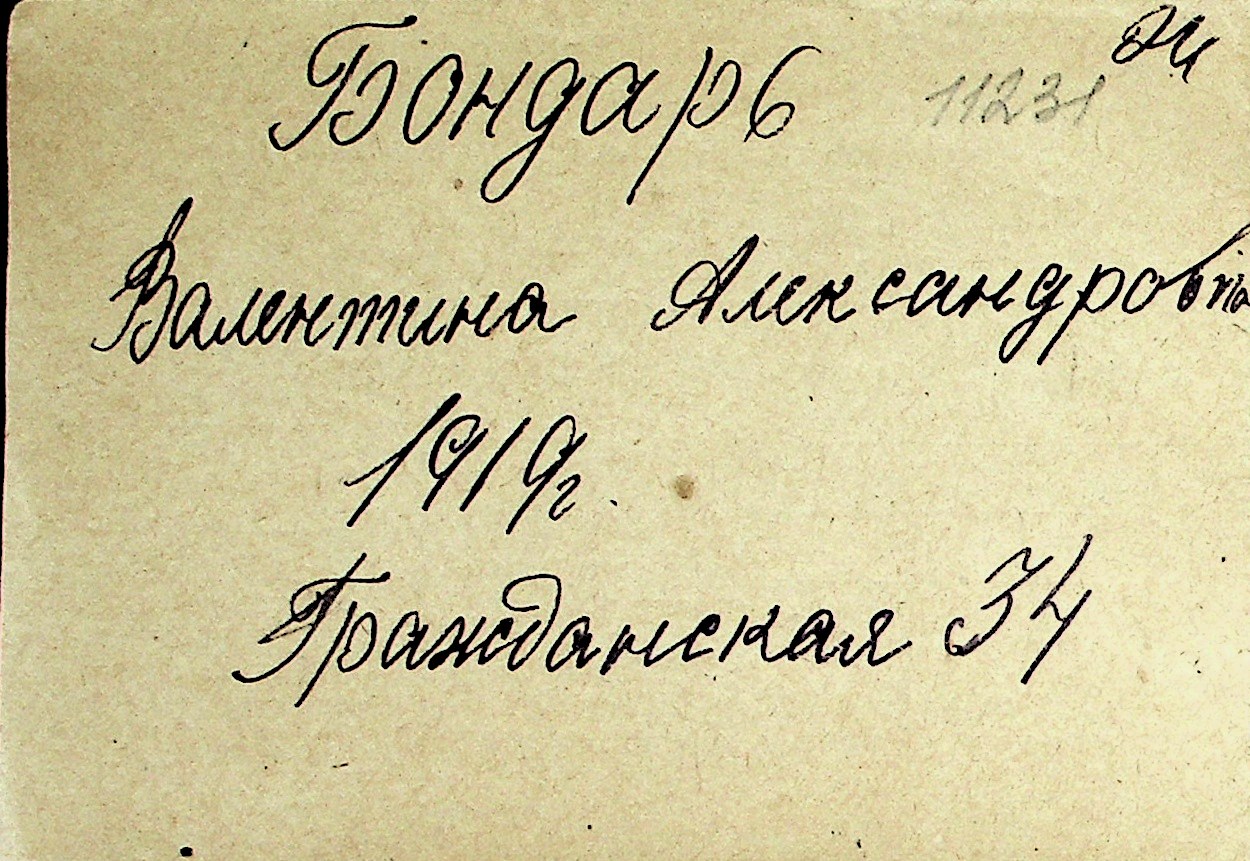 Бондарь 11231
Валентина Александровна
1919г.
Гражданская 34